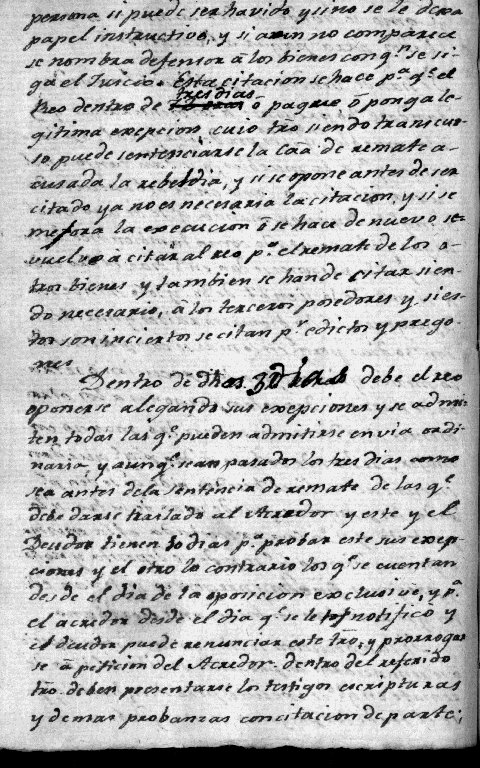 persona si puede ser havido y sino se le dexa
papel instructivo, y si aun no comparece
se nombra defensor â los bienes con qn. se si-
ga el Juicio. Esta citacion se hace pa. qe. el
tres dias
Reo dentro de ô pague ô ponga le-
gitima excepcion, cuio tro. siendo transcur-
so puede sentenciarse la Caâ. de remate a-
cusada la rebeldia, y si se opone antes de ser
citado ya no es necesaria la citacion, y si se
mejora la execucion ô se hace de nuevo se
vuelve â citar al reo pa. el remate de los o-
tros bienes y tambien se han de citar sien-
do necesario, â los terceros posedores y si es-
tos son inciertos se citan pr. edictos y prego-
nes
Dentro de dhos 3 Dias debe el reo
oponerse alegando sus excepciones y se admi-
ten todas las qe. pueden admitirse en via ordi-
naria, y aunqe. sean pasados los tres dias como
sea antes de la sentencia de remate de las qe.
debe darse traslado al Acredor y este y el
Deudor tienen 10 dias pa. probar este sus excep-
ciones y el otro lo contrario los qe. se cuentan
desde el dia de la oposicion exclusive, y pa.
el acredor desde el dia qe. se le notificó y
el deudor puede renunciar este tro., y prorrogar
se â peticion del Acredor. dentro del referido
tro. deben presentarse los testigos escripturas
y demas probanzas con citacion de parte;